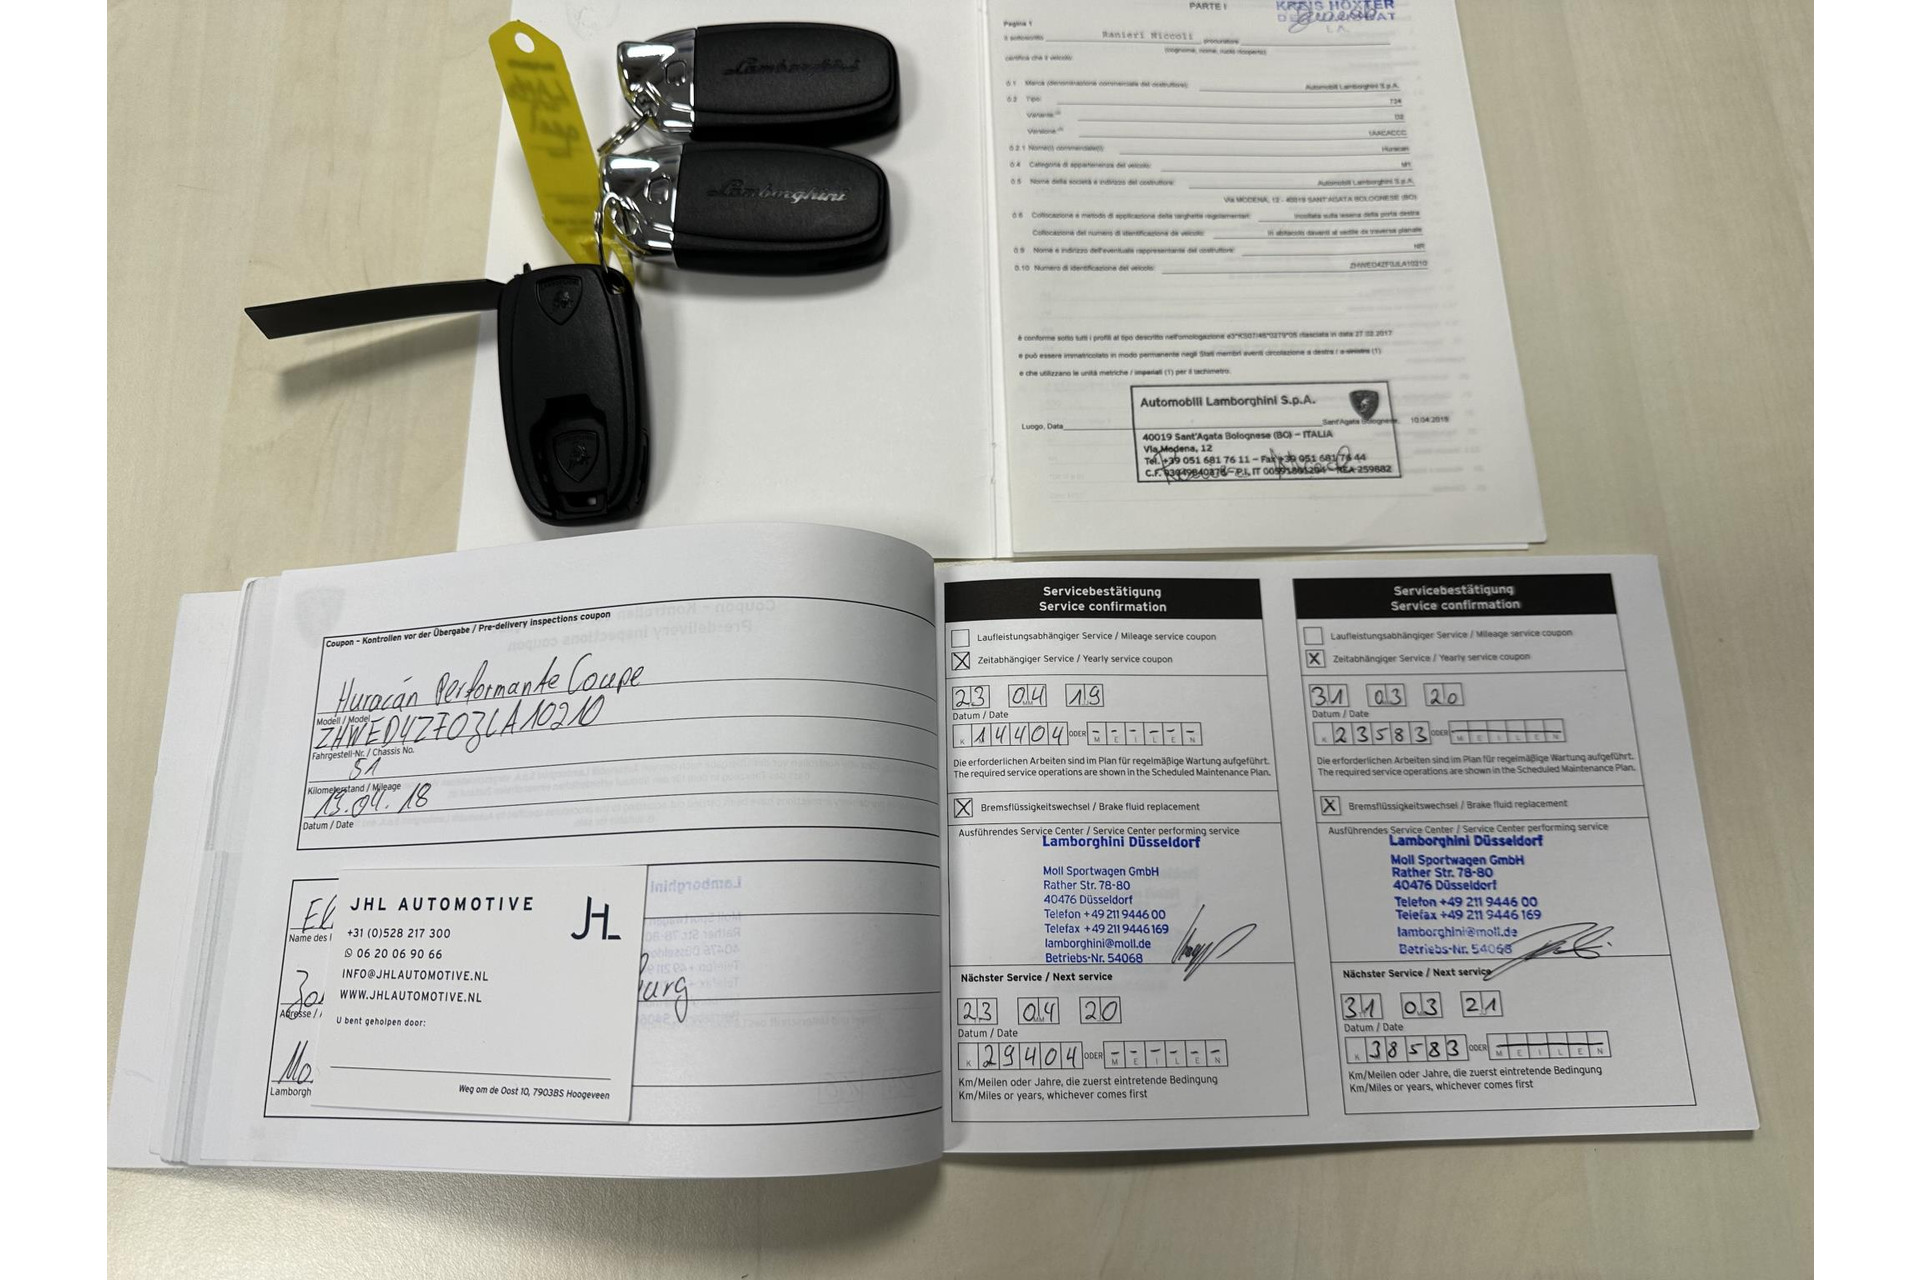 Lamborghini
Lamborghini
PARTE I
KREIS HÖXTER
Pagina 1
Il sottoscritto Ranieri Niccoli procuratore
(cognome, nome, ruolo ricoperto)
certifica che il veicolo:
0.1 Marca (denominazione commerciale del costruttore): Automobili Lamborghini S.p.A.
0.2 Tipo: 724
Variante
Versione
0.2.1 Nome(i) commerciale(i): Huracan
0.4 Categoria di appartenenza del veicolo: M1
0.5 Nome della società e indirizzo del costruttore: Automobili Lamborghini S.p.A.
Via MODENA, 12 - 40019 SANT'AGATA BOLOGNESE (BO)
0.6 Collocazione e metodo di applicazione delle targhette regolamentari: incollata sulla traversa della porta destra
Collocazione del numero di identificazione del veicolo:
0.9 Nome e indirizzo dell'eventuale rappresentante del costruttore:
0.10 Numero di identificazione del veicolo:
è conforme sotto tutti i profili al tipo descritto nell'omologazione rilasciata in data 27.02.2017
e può essere immatricolato in modo permanente negli Stati membri aventi circolazione a destra / a sinistra (1)
e che utilizzano le unità metriche / imperiali (1) per il tachimetro.
Automobili Lamborghini S.p.A.
Luogo, Data Sant'Agata Bolognese, 10.04.2018
40019 Sant'Agata Bolognese (BO) – ITALIA
Via Modena, 12
Tel. +39 051 681 76 11 – Fax +39 051 681 76 44
C.F. REA 259882
Coupon – Kontrollen vor der Übergabe / Pre-delivery inspections coupon
Huracán Performante Coupe
Modell / Model
ZHWED4Z70JLA10210
Fahrgestell-Nr. / Chassis No.
51
Kilometerstand / Mileage
19.04.18
Datum / Date
Name des
Adresse /
Lamborgh
burg
JHL AUTOMOTIVE
JHL
+31 (0)528 217 300
06 20 06 90 66
INFO@JHLAUTOMOTIVE.NL
WWW.JHLAUTOMOTIVE.NL
U bent geholpen door:
Weg om de Oost 10, 7903BS Hoogeveen
Servicebestätigung
Service confirmation
Laufleistungsabhängiger Service / Mileage service coupon
X Zeitabhängiger Service / Yearly service coupon
23 04 19
Datum / Date
K 14404 ODER - - - - - -
Die erforderlichen Arbeiten sind im Plan für regelmäßige Wartung aufgeführt.
The required service operations are shown in the Scheduled Maintenance Plan.
X Bremsflüssigkeitswechsel / Brake fluid replacement
Ausführendes Service Center / Service Center performing service
Lamborghini Düsseldorf
Moll Sportwagen GmbH
Rather Str. 78-80
40476 Düsseldorf
Telefon +49 211 9446 00
Telefax +49 211 9446 169
lamborghini@moll.de
Betriebs-Nr. 54068
Nächster Service / Next service
23 04 20
Datum / Date
K 29404 ODER M E I L E N
Km/Meilen oder Jahre, die zuerst eintretende Bedingung
Km/Miles or years, whichever comes first
Servicebestätigung
Service confirmation
Laufleistungsabhängiger Service / Mileage service coupon
X Zeitabhängiger Service / Yearly service coupon
31 03 20
Datum / Date
K 23583 ODER M E I L E N
Die erforderlichen Arbeiten sind im Plan für regelmäßige Wartung aufgeführt.
The required service operations are shown in the Scheduled Maintenance Plan.
X Bremsflüssigkeitswechsel / Brake fluid replacement
Ausführendes Service Center / Service Center performing service
Lamborghini Düsseldorf
Moll Sportwagen GmbH
Rather Str. 78-80
40476 Düsseldorf
Telefon +49 211 9446 00
Telefax +49 211 9446 169
lamborghini@moll.de
Betriebs-Nr. 54068
Nächster Service / Next service
31 03 21
Datum / Date
K 38583 ODER M E I L E N
Km/Meilen oder Jahre, die zuerst eintretende Bedingung
Km/Miles or years, whichever comes first